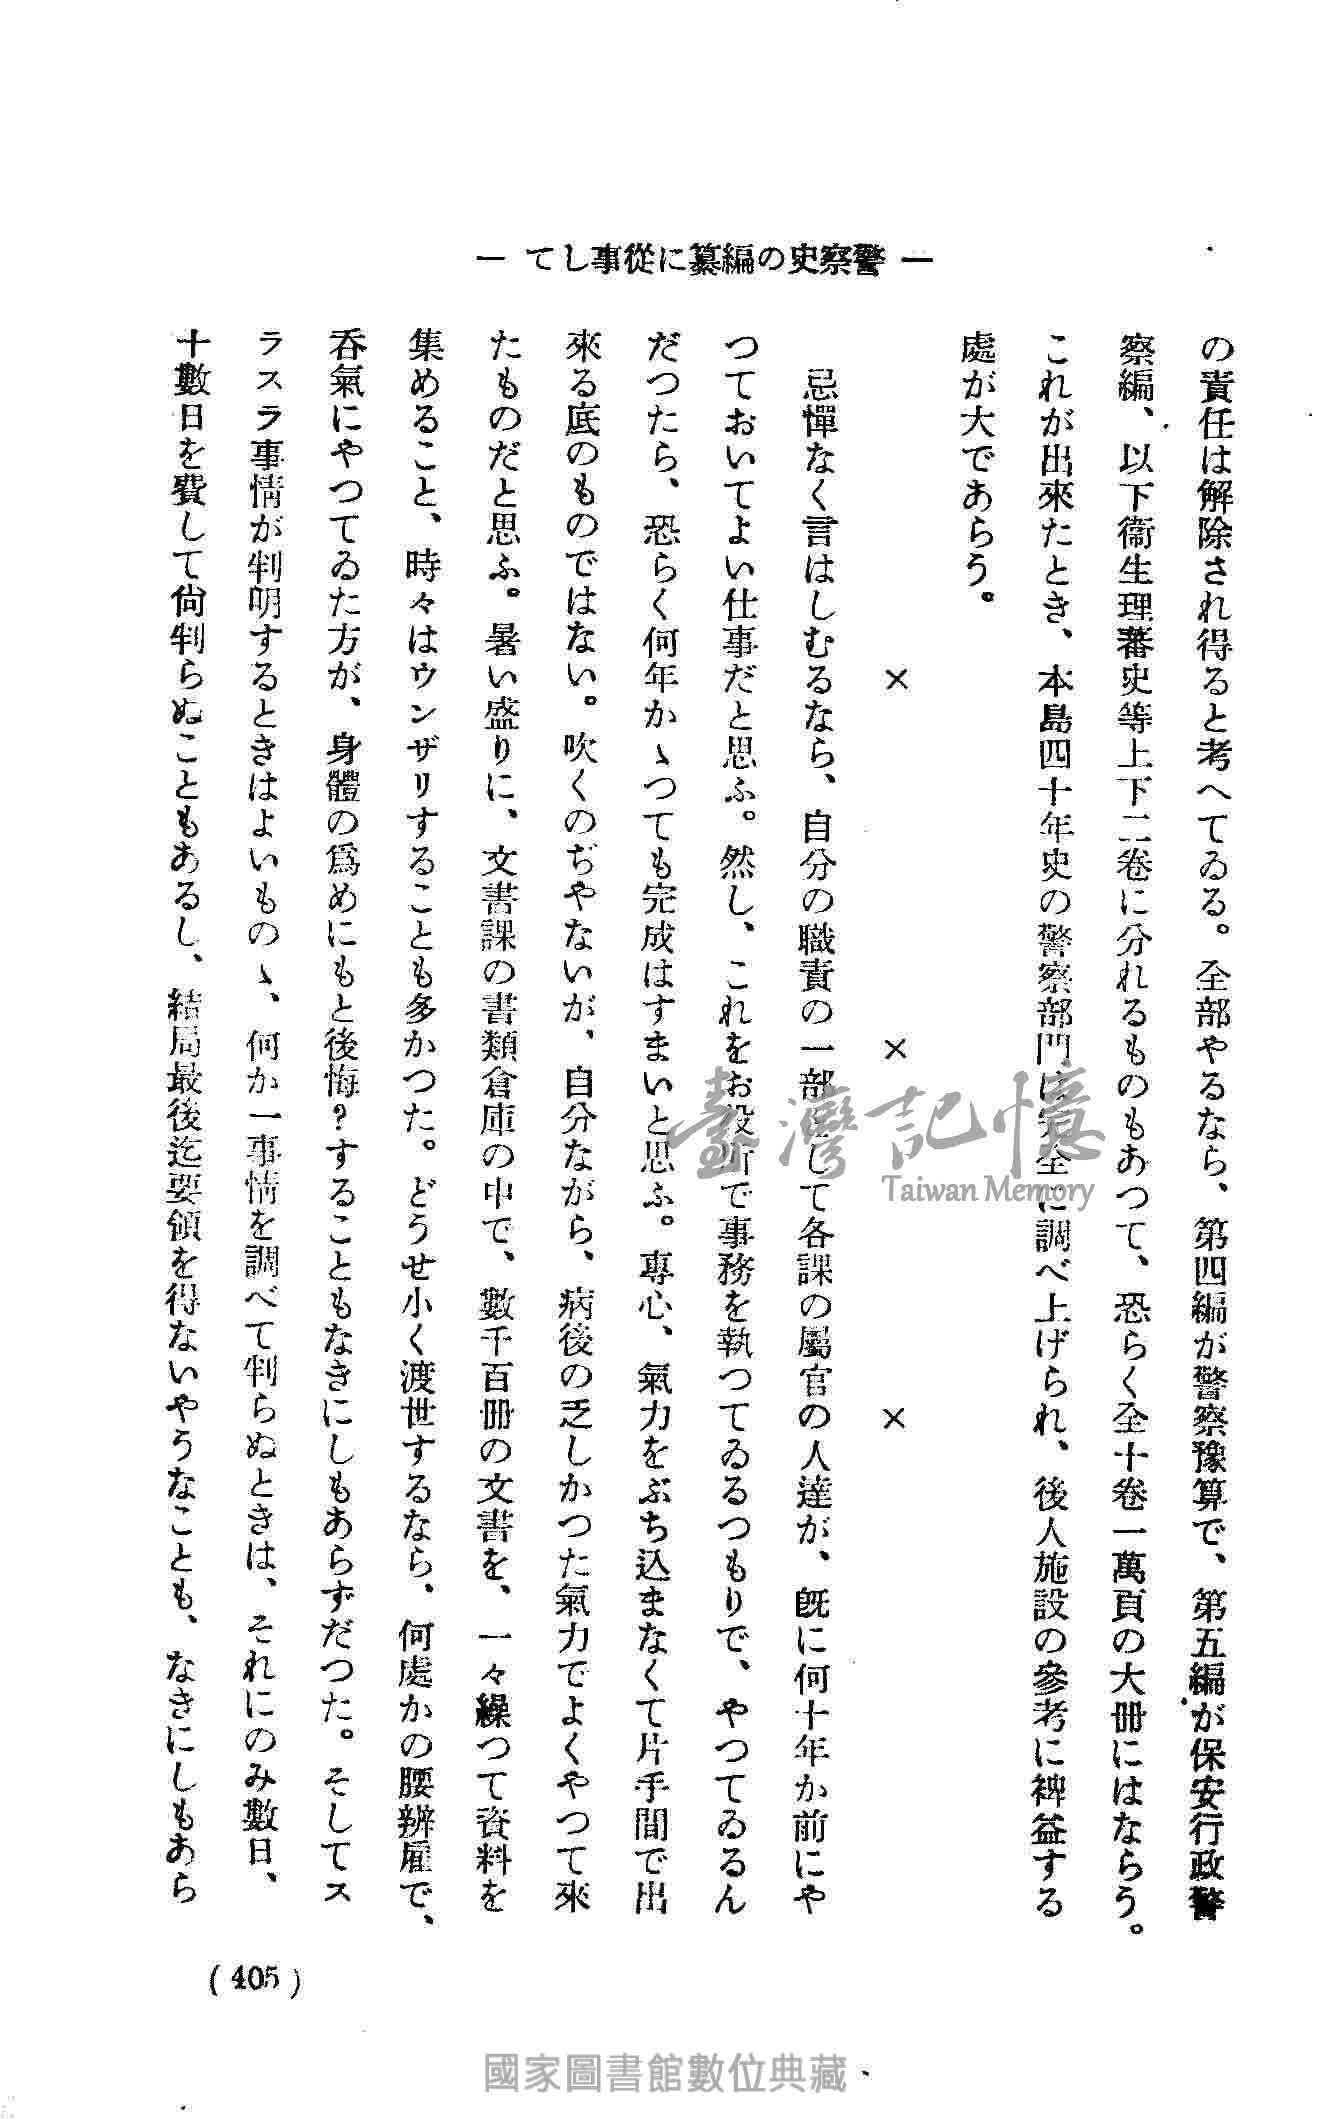 ― 警察史の編纂に從事して ―
の責任は解除され得ると考へてゐる。全部やるなら、第四編が警察豫算で、第五編が保安行政警
察編、以下衞生理蕃史等上下二卷に分れるものもあつて、恐らく全十卷一萬頁の大冊にはならう。
これが出來たとき、本島四十年史の警察部門は完全に調べ上げられ、後人施設の參考に裨益する
處が大であらう。
× × ×
忌憚なく言はしむるなら、自分の職責の一部として各課の屬官の人達が、旣に何十年か前にや
つておいてよい仕事だと思ふ。然し、これをお役所で事務を執つてゐるつもりで、やつてゐるん
だつたら、恐らく何年かゝつても完成はすまいと思ふ。專心、氣力をぶち込まなくて片手間で出
來る底のものではない。吹くのぢやないが、自分ながら、病後の乏しかつた氣力でよくやつて來
たものだと思ふ。暑い盛りに、文書課の書類倉庫の中で、數千百冊の文書を、一々繰つて資料を
集めること、時々はウンザリすることも多かつた。どうせ小く渡世するなら、何處かの腰辨雇で、
呑氣にやつてゐた方が、身體の爲めにもと後悔?することもなきにしもあらずだつた。そしてス
ラスラ事情が判明するときはよいものゝ、何か一事情を調べて判らぬときは、それにのみ數日、
十數日を費して尙判らぬこともあるし、結局最後迄要領を得ないやうなことも、なきにしもあら
(405)
臺灣記憶
Taiwan Memory
國家圖書館數位典藏